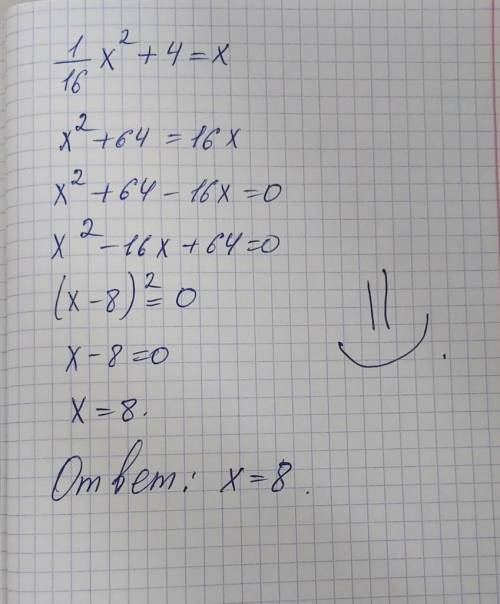 1/16 x² + 4 = x
x² + 64 = 16x
x² + 64 - 16x = 0
x² - 16x + 64 = 0
(x - 8)² = 0
x - 8 = 0
x = 8.
Ответ: x = 8.